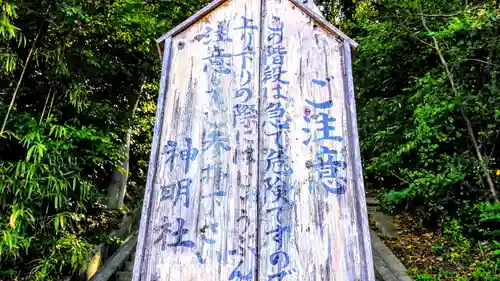 ご注意
この階段は急で危険ですので
上り下りの際はじゅうぶん
注意して下さい
神明社